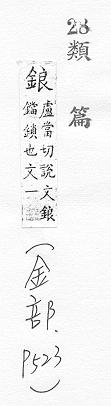 28
類篇
鋃
盧當切說文鋃
鐺鎖也文一
(金部. P523)